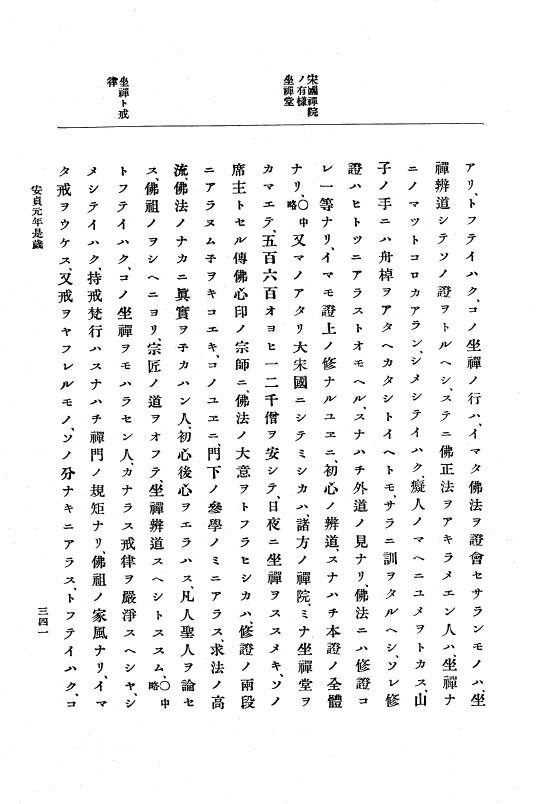 宋國禪院
ノ有樣
坐禪堂
坐禪ト戒
律
アリ、トフテイハク、コノ坐禪ノ行ハ、イマタ佛法ヲ證會セサランモノハ、坐
禪辨道シテソノ證ヲトルヘシ、ステニ佛正法ヲアキラメエン人ハ、坐禪ナ
ニノマツトコロカアラン、シメシテイハク、癡人ノマヘニユメヲトカス、山
子ノ手ニハ舟棹ヲアタヘカタシトイヘトモ、サラニ訓ヲタルヘシ、ソレ修
證ハヒトツニアラストオモヘル、スナハチ外道ノ見ナリ、佛法ニハ修證コ
レ一等ナリ、イマモ證上ノ修ナルユヱニ、初心ノ辨道、スナハチ本證ノ全體
ナリ、〇中略又マノアタリ大宋國ニシテミシカハ、諸方ノ禪院、ミナ坐禪堂ヲ
カマエテ、五百六百オヨヒ一二千僧ヲ安シテ、日夜ニ坐禪ヲススメキ、ソノ
席主トセル傳佛心印ノ宗師ニ、佛法ノ大意ヲトフラヒシカハ、修證ノ兩段
ニアラヌムネヲキコエキ、コノユヱニ、門下ノ參學ノミニアラス、求法ノ高
流、佛法ノナカニ眞實ヲネカハン人、初心後心ヲエラハス、凡人聖人ヲ論セ
ス、佛祖ノヲシヘニヨリ、宗匠ノ道ヲオフテ、坐禪辨道スヘシトススム、〇中略
トフテイハク、コノ坐禪ヲモハラセン人、カナラス戒律ヲ嚴淨スヘシヤ、シ
メシテイハク、持戒梵行ハスナハチ禪門ノ規矩ナリ、佛祖ノ家風ナリ、イマ
タ戒ヲウケス、又戒ヲヤフレルモノ、ソノ分ナキニアラス、トフテイハク、コ
安貞元年是歲
三四一